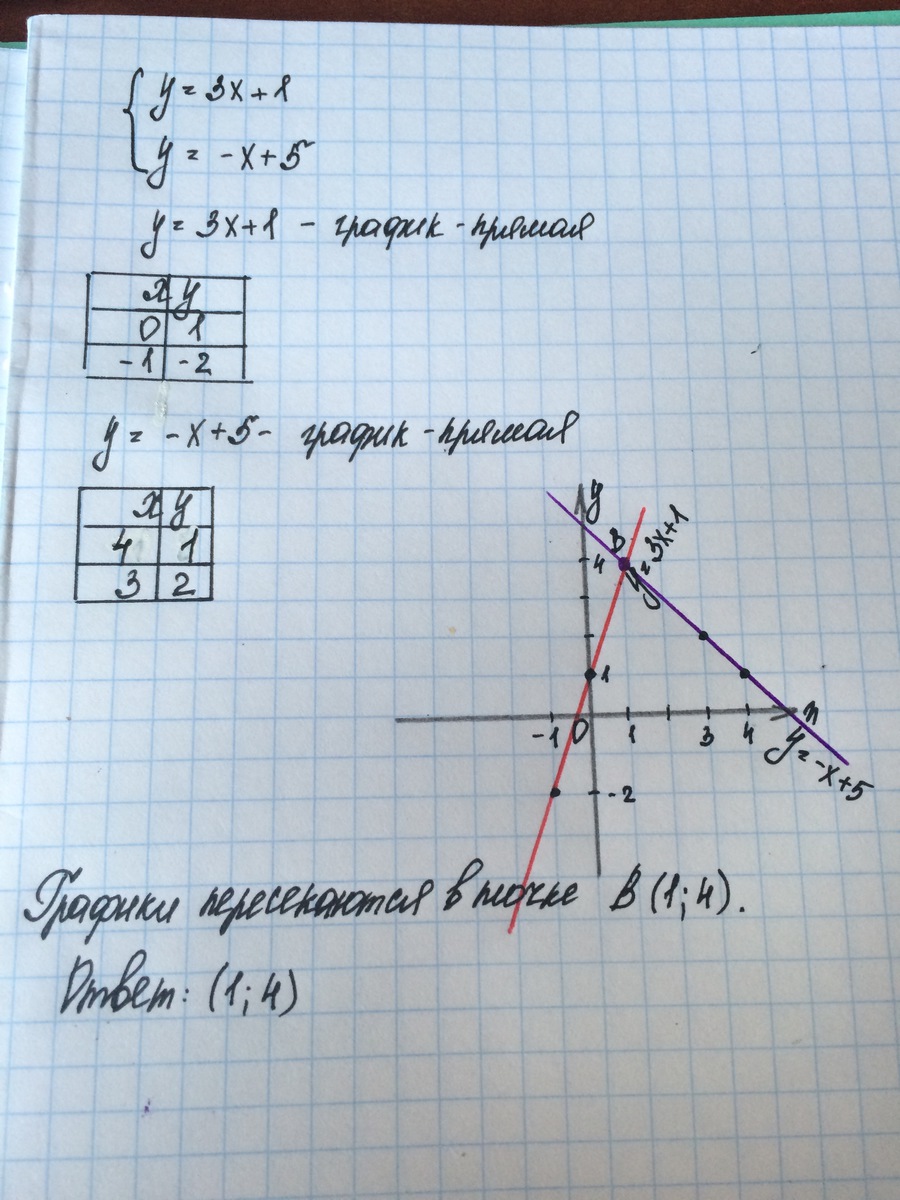 y = 3x + 1
y = -x + 5
y = 3x + 1 - график - прямая
x y
0 1
-1 -2
y = -x + 5 - график - прямая
x y
4 1
3 2
y
B
4
y = 3x + 1
1
-1 0 1 3 4 x
y = -x + 5
-2
Графики пересекаются в точке B (1; 4).
Ответ: (1; 4)